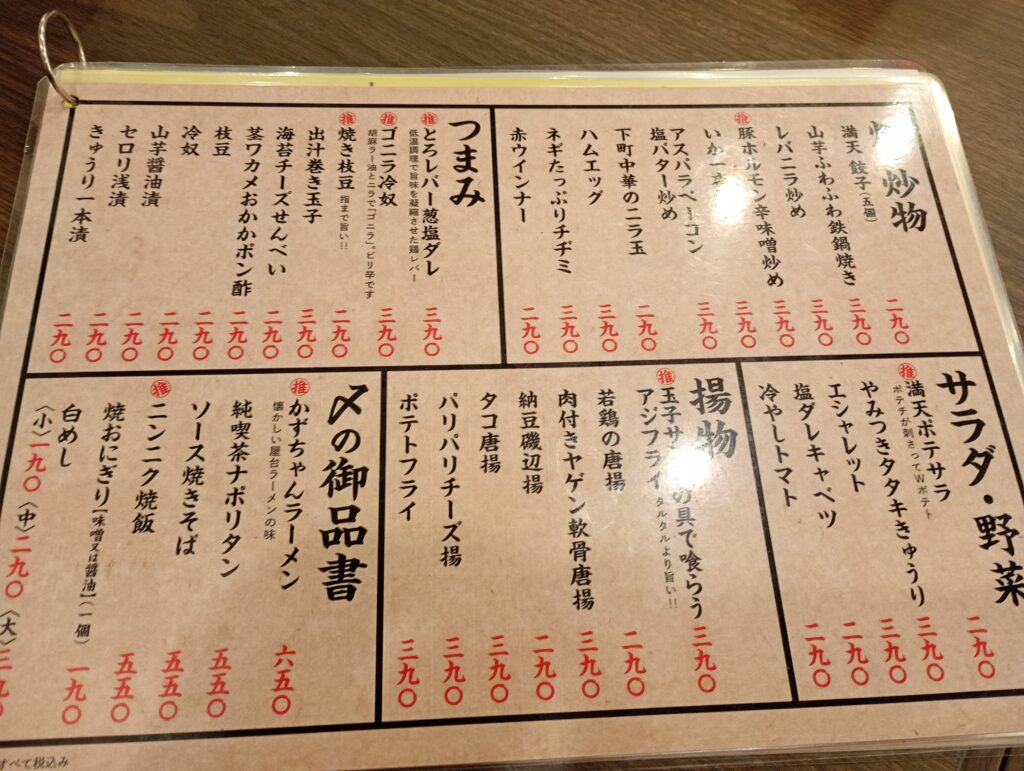 炒物
満天 餃子(五個) 二九〇
山芋ふわふわ鉄鍋焼き 三九〇
レバニラ炒め 三九〇
推 豚ホルモン辛味噌炒め 三九〇
いか一 三九〇
アスパラベーコン
塩バター炒め 三九〇
下町中華のニラ玉 二九〇
ハムエッグ 三九〇
ネギたっぷりチヂミ 三九〇
赤ウインナー 二九〇
つまみ
推 とろレバー葱塩ダレ 三九〇
低温調理で旨味を凝縮させた鶏レバー
推 ゴニラ冷奴 三九〇
胡麻ラー油とニラで「ゴニラ」。ピリ辛です
推 焼き枝豆 指まで旨い!! 二九〇
出汁巻き玉子 三九〇
海苔チーズせんべい 二九〇
茎ワカメおかかポン酢 二九〇
枝豆 二九〇
冷奴 二九〇
山芋醤油漬 二九〇
セロリ浅漬 二九〇
きゅうり一本漬 二九〇
サラダ・野菜
推 満天ポテサラ 二九〇
ポテチが刺さってWポテト
やみつきタタキきゅうり 三九〇
エシャレット 二九〇
塩ダレキャベツ 二九〇
冷やしトマト 二九〇
揚物
推 玉子サ の具で喰らう
アジフライ タルタルより旨い!! 三九〇
若鶏の唐揚 二九〇
肉付きヤゲン軟骨唐揚 三九〇
納豆磯辺揚 二九〇
タコ唐揚 三九〇
パリパリチーズ揚 三九〇
ポテトフライ 三九〇
〆の御品書
推 かずちゃんラーメン 六五〇
懐かしい屋台ラーメンの味
純喫茶ナポリタン 五五〇
ソース焼きそば 五五〇
推 ニンニク焼飯 五五〇
焼おにぎり【味噌又は醤油】(一個) 一九〇
白めし
〈小〉一九〇 〈中〉二九〇 〈大〉三九〇
すべて税込み